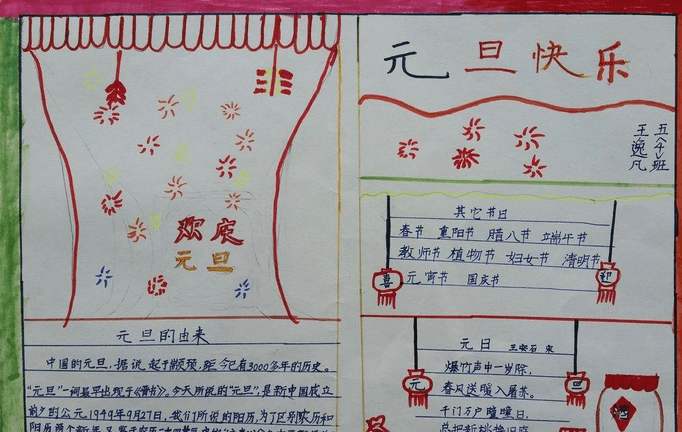 元旦快乐
五(4)班
王逸凡
欢庆
元旦
其它节日
春节 重阳节 腊八节 端午节
教师节 植物节 妇女节 清明节
元宵节 国庆节
喜
迎
元旦的由来
中国的元旦,据说起于颛顼,距今已有3000多年的历史。
"元旦"一词最早出现于《晋书》。今天所说的"元旦",是新中国成立
前夕的公元1949年9月27日,我们所说的阳历,为了区别农历和
阳历两个新年,又
元日 王安石 宋
爆竹声中一岁除,
春风送暖入屠苏。
千门万户曈曈日,
总把新桃换旧符
元
旦
酒